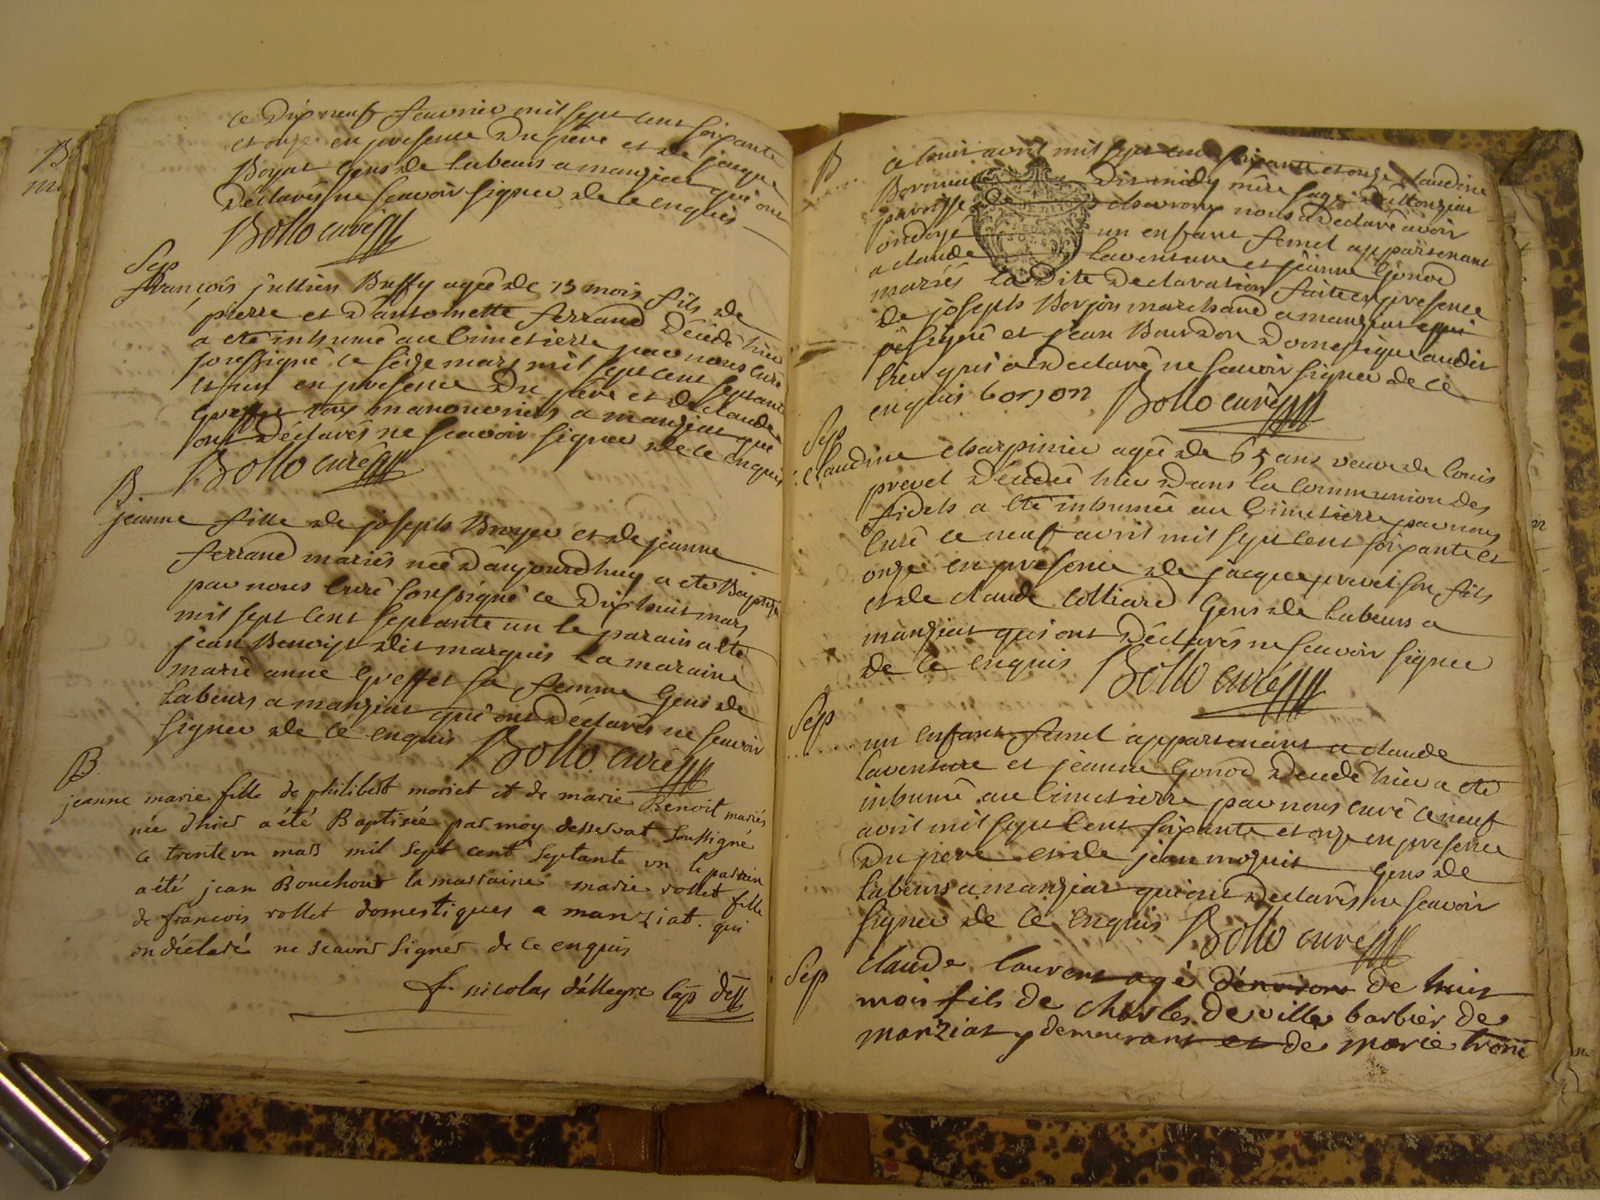 B
ce dixneuf fevrier mil sept cent soixante
et onze en presence du pere et de jaque
Boyat gens de labeurs a manziat qui ont
déclarés ne scavoir signer de ce enquis
Bollo curé
Sep
francois jullien Buffy agée de 15 mois fils de
pierre et d'antoinette ferrand décédé hier
a eté inhumé au Cimetierre par nous curé
soussigné ce seize mars mil sept cent septante
et un en presence du pere et de claude
greffet manouvriers a manziat qui
ont déclarés ne scavoir signer de ce enquis
Bollo curé
B
jeanne fille de joseph Broyer et de jeanne
ferrand mariés née d'aujourdhuy a eté Baptisée
par nous curé soussigné ce dix huit mars
mil sept cent septante un le parain a eté
jean Benoist dit marquis la maraine
marie anne greffet sa femme gens de
labeurs a manziat qui ont déclarés ne scavoir
signer de ce enquis Bollo curé
B
jeanne marie fille de philibert moriet et de marie Benoit mariés
née d'hier a été Baptisée par moy desservat soussigné
ce trente un mars mil sept cent septante un le parrain
a été jean Bouchoux la marraine marie rollet fille
de francois rollet domestiques a manziat qui
on déclaré ne scavoir signer de ce enquis
f. nicolas d'allegre cap dess
B
ce huit avril mil sept cent soixante et onze claudine
mere sage de Manziat
paroisse de chavroux nous a déclaré avoir
ondoyé un enfant femel appartenant
a claude laventure et jeanne gonod
mariés la dite declaration faite en presence
de joseph Borjon marchand a manziat qui
a signé et jean Bourdon domestique audit
lieu qui a déclaré ne scavoir signer de ce
enquis borjon Bollo curé
Sep
claudine charpinier agée de 65 ans veuve de louis
prevet décédée hier dans la communion des
fidels a eté inhumée au Cimetierre par nous
curé ce neuf avril mil sept cent soixante et
onze en presence de jacque prevet son fils
et de claude colliard gens de labeurs a
manziat qui ont déclarés ne scavoir signer
de ce enquis Bollo curé
Sep
un enfant femel appartenant a claude
laventure et jeanne gonod décédé hier a eté
inhumé au Cimetierre par nous curé ce neuf
avril mil sept cent soixante et onze en presence
du pere et de jean moguit gens de
labeurs a manziat qui ont déclarés ne scavoir
signer de ce enquis Bollo curé
Sep
claude laurent agé d'environ de huit
mois fils de charles deville barbier de
manziat y demeurant et de marie